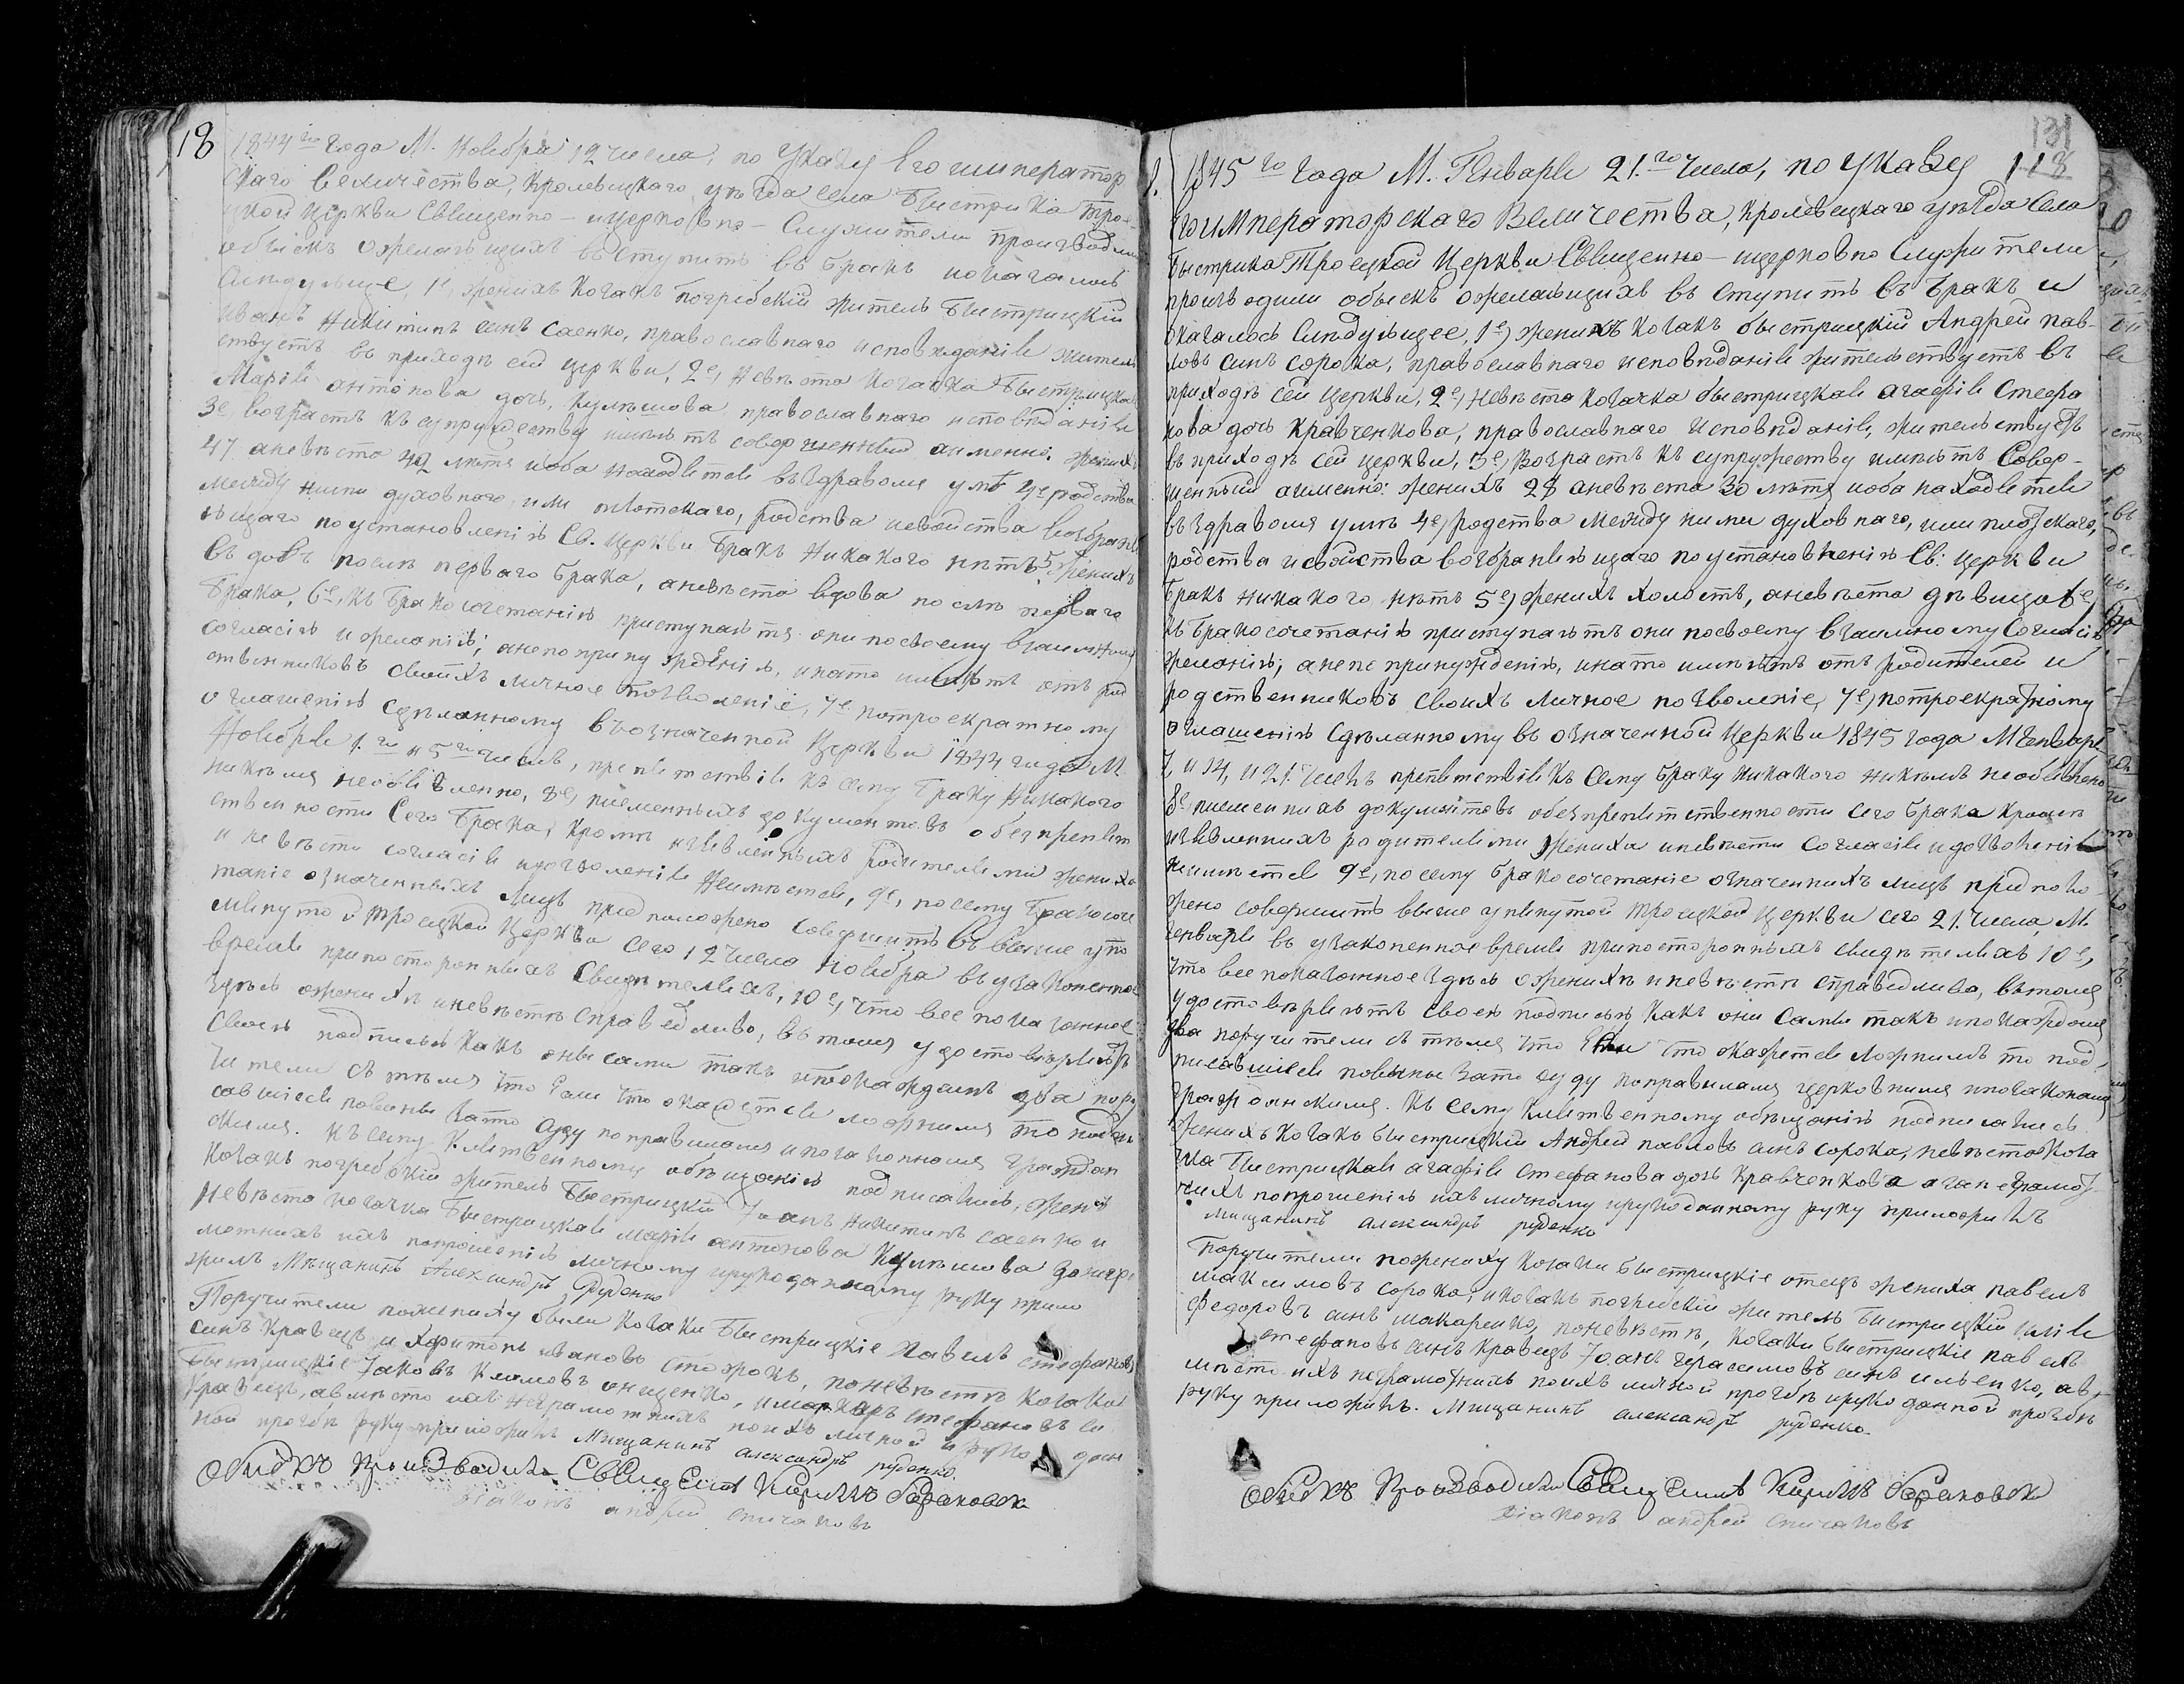 18
1844го года М. Ноября 12 числа, по Указу Его император
скаго величества, Кролевецкаго уезда села Быстрика Трое
цкой Церкви Священно-ицерковно-Служители производили
обыскъ ожелающихъ въступить въ бракъ иоказалось
слидующее, 1е, женихъ козакъ погребскій житель Быстрицкій
Иванъ Никитинъ синъ Саенко, православнаго исповѣданія жител
ствуетъ въ приходѣ сей церкви, 2е, Невѣста козачка Быстрицкая
Марія антонова дочь, Кулѣшова православнаго исповѣданія
3е, возрастъ къ супружеству имѣютъ совершенный аименно: женихъ
47 аневѣста 42 лѣтъ иоба находятся въздравомъ умѣ 4е родства
между ними духовнаго, или плотскаго, родства исвойства возбраня
ющаго по установленію Св. Церкви бракъ Никакого нѣтъ 5 женихъ
вдовъ послѣ перваго брака, аневѣста вдова послѣ перваго
брака, 6е, къ бракосочетанію приступаютъ они посвоему взаимному
согласію и желанію, анепопринужденію, инато имѣютъ отъ род
ственниковъ своихъ личное позволеніе, 7е, потроекратному
оглашенію сдѣланному въозначенной Церкви 1844 года М
Ноября 1.го и 5го числъ, препятствія къ сему браку никакого
никѣмъ необявленно, 8е, писменныхъ документовъ обезпрепят
ственности сего брака, кромѣ изявленныхъ родителями жениха
и невѣсты согласія идозволенія Неимѣется, 9е, посему бракосоче
таніе означенныхъ лицъ предположено совершить въ выше упо
мянутой Троецкой Церкви сего 12 числа ноября въ узаконенное
время припостороннихъ Свидѣтеляхъ, 10е, что все показанное
здѣсь ожених и невѣстѣ справедливо, въ томъ удостовѣряютъ
своею подписью какъ оны сами такъ ипокаждамъ два пору
чители съ тѣмъ что Если что окажется ложнымъ то подпи
савшіеся повинны зато суду поправиламъ ипозаконамъ граждан
скимъ. Къ сему Клятвенному обѣщанію подписались, женихъ
козакъ погребскій житель Быстрицкій Іоанъ Никитинъ Саенко и
невѣста козачка Быстрицкая Марія антонова Кулѣшова
мотнихъ ихъ попрошенію личному ирукоданному руку прило
жилъ Мѣщанинъ Александръ Руденко
Поручители пожениху были козаки Быстрицкіе Павелъ Стефановъ
синъ Кравецъ и Харитонъ ивановъ Стожокъ, поневѣстѣ козаки
Быстрицкіе Яковъ Климовъ онищенко, имакаръ Стефановъ си
Кравецъ, авмѣсто ихъ неграмотнихъ поихъ личной ируко дан
ной прозбѣ руку приложилъ Мищанинъ александръ руденко.
Обискъ Производилъ Священникъ Кирилъ Барановск
діаконъ андрей Спичаковъ

131
118
1.
1845го года М. Генваря 21.го числа, по указу
Его императорскаго Величества, Кролевецкаго уезда Села
Быстрика Троецкой Церкви Священно-ицерковно Служители
производили обыскъ ожелающихъ въступить въ бракъ и
оказалось слидующее, 1е, женихъ козакъ быстрицкій Андрей пав-
ловъ синъ сорока, православнаго исповѣданія жительствуетъ въ
приходѣ сей церкви, 2е, Невѣста козачка быстрицкая агафія Стефа
нова дочь Кравченкова, православнаго Исповѣданія, жительствуетъ
въ приходѣ сей церкви, 3е, возрастъ къ супружеству имѣютъ Совер-
шенный аименно: женихъ 28 аневѣста 30 лѣтъ иоба находятся
въздравомъ умѣ 4е, родства между ними духовнаго, или плотскаго,
родства исвойства возбраняющаго поустановленію Св: Церкви
бракъ никакого нѣтъ 5е, женихъ холостъ, аневѣста дѣвица 6е,
къ бракосочетанію приступаютъ они посвоему взаимному Согласію
желанію, анепо принужденію, инато имѣютъ отъ родителей и
родственниковъ своихъ личное позволеніе, 7е, потроекратному
оглашенію сдѣланному въ означенной Церкви 1845 года М Генваря
7, и 14, и 21. числъ препятствія къ сему браку никакого никѣмъ необявлено
8е, писменнихъ документовъ обезпрепятственности сего брака кромѣ
изявленнихъ родителями жениха иневѣсти Согласія идозволенія
неимѣется 9е, посему бракосочетаніе означеннихъ лицъ предполо-
жено совершить выше упянутой Троецкой Церкви сего 21. числа, М.
генваря въ узаконенное время припостороннихъ свидѣтеляхъ 10е,
что все показанное здѣсь ожених иневѣстѣ справедливо, вътомъ
удостовѣряютъ своею подписью Какъ они Сами такъ ипокаждомъ
два поручители съ тѣмъ что Если что окажется ложнимъ то под-
писавшіеся повинны зато суду поправиламъ церковнимъ ипозаконамъ
гражданскимъ. Къ сему клятвенному обѣщанію подписались
Женихъ козакъ быстрицкій Андрей павловъ синъ сорока, невѣста Коза
чка Быстрицкая агафія Стефанова дочь Кравченкова азанеграмот
нихъ попрошенію ихъ личному ирукоданному руку приложилъ
Мищанинъ александръ руденко
Поручители пожениху козаки быстрицкіе отецъ жениха павелъ
максимовъ сорока, икозакъ погребскій житель Быстрицкій илія
Федоровъ синъ макаренко, поневѣстѣ, козаки быстрицкіе павелъ
стефановъ синъ Кравецъ Іоанъ герасимовъ синъ ильенко, ав-
мѣсто ихъ неграмотнихъ поихъ личной прозбѣ ирукоданной прозбѣ
руку приложилъ. Мищанинъ александръ руденко
Обискъ Производилъ Священникъ Кирилъ Барановски
діаконъ андрей Спичаковъ